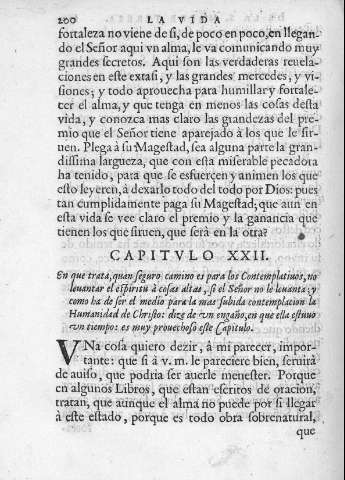 200 LA VIDA
fortaleza no viene de si, de poco en poco, en llegan-
do el Señor aqui vn alma, le va comunicando muy
grandes secretos. Aqui son las verdaderas reuela-
ciones en este extasi, y las grandes mercedes, y vi-
siones; y todo aprouecha para humillar y fortale-
cer el alma, y que tenga en menos las cosas desta
vida, y conozca mas claro las grandezas del pre-
mio que el Señor tiene aparejado à los que le sir-
uen. Plega à su Magestad, sea alguna parte la gran-
dissima largueza, que con esta miserable pecadora
ha tenido, para que se esfuercen y animen los que
esto leyeren, à dexarlo todo del todo por Dios: pues
tan cumplidamente paga su Magestad; que aun en
esta vida se vee claro el premio y la ganancia que
tienen los que siruen, que será en la otra?
CAPITVLO XXII.
En que trata, quan seguro camino es para los Contemplatiuos, no
leuantar el espiritu à cosas altas, si el Señor no le leuanta; y
como ha de ser el medio para la mas subida contemplacion la
Humanidad de Christo: dize de vn engaño, en que ella estuuo
vn tiempo: es muy prouechoso este Capitulo.
VNa cosa quiero dezir, à mi parecer, impor-
tante: que si à v. m. le pareciere bien, seruirà
de auiso, que podria ser auerle menester. Porque
en algunos Libros, que estan escritos de oracion,
tratan, que aunque el alma no puede por si llegar
à este estado, porque es todo obra sobrenatural,
que